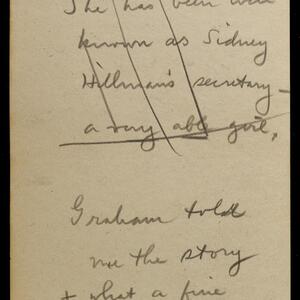 She has been well
known as Sidney
Hillman's secretary –
a very able girl,
Graham told
me the story
+ what a fine